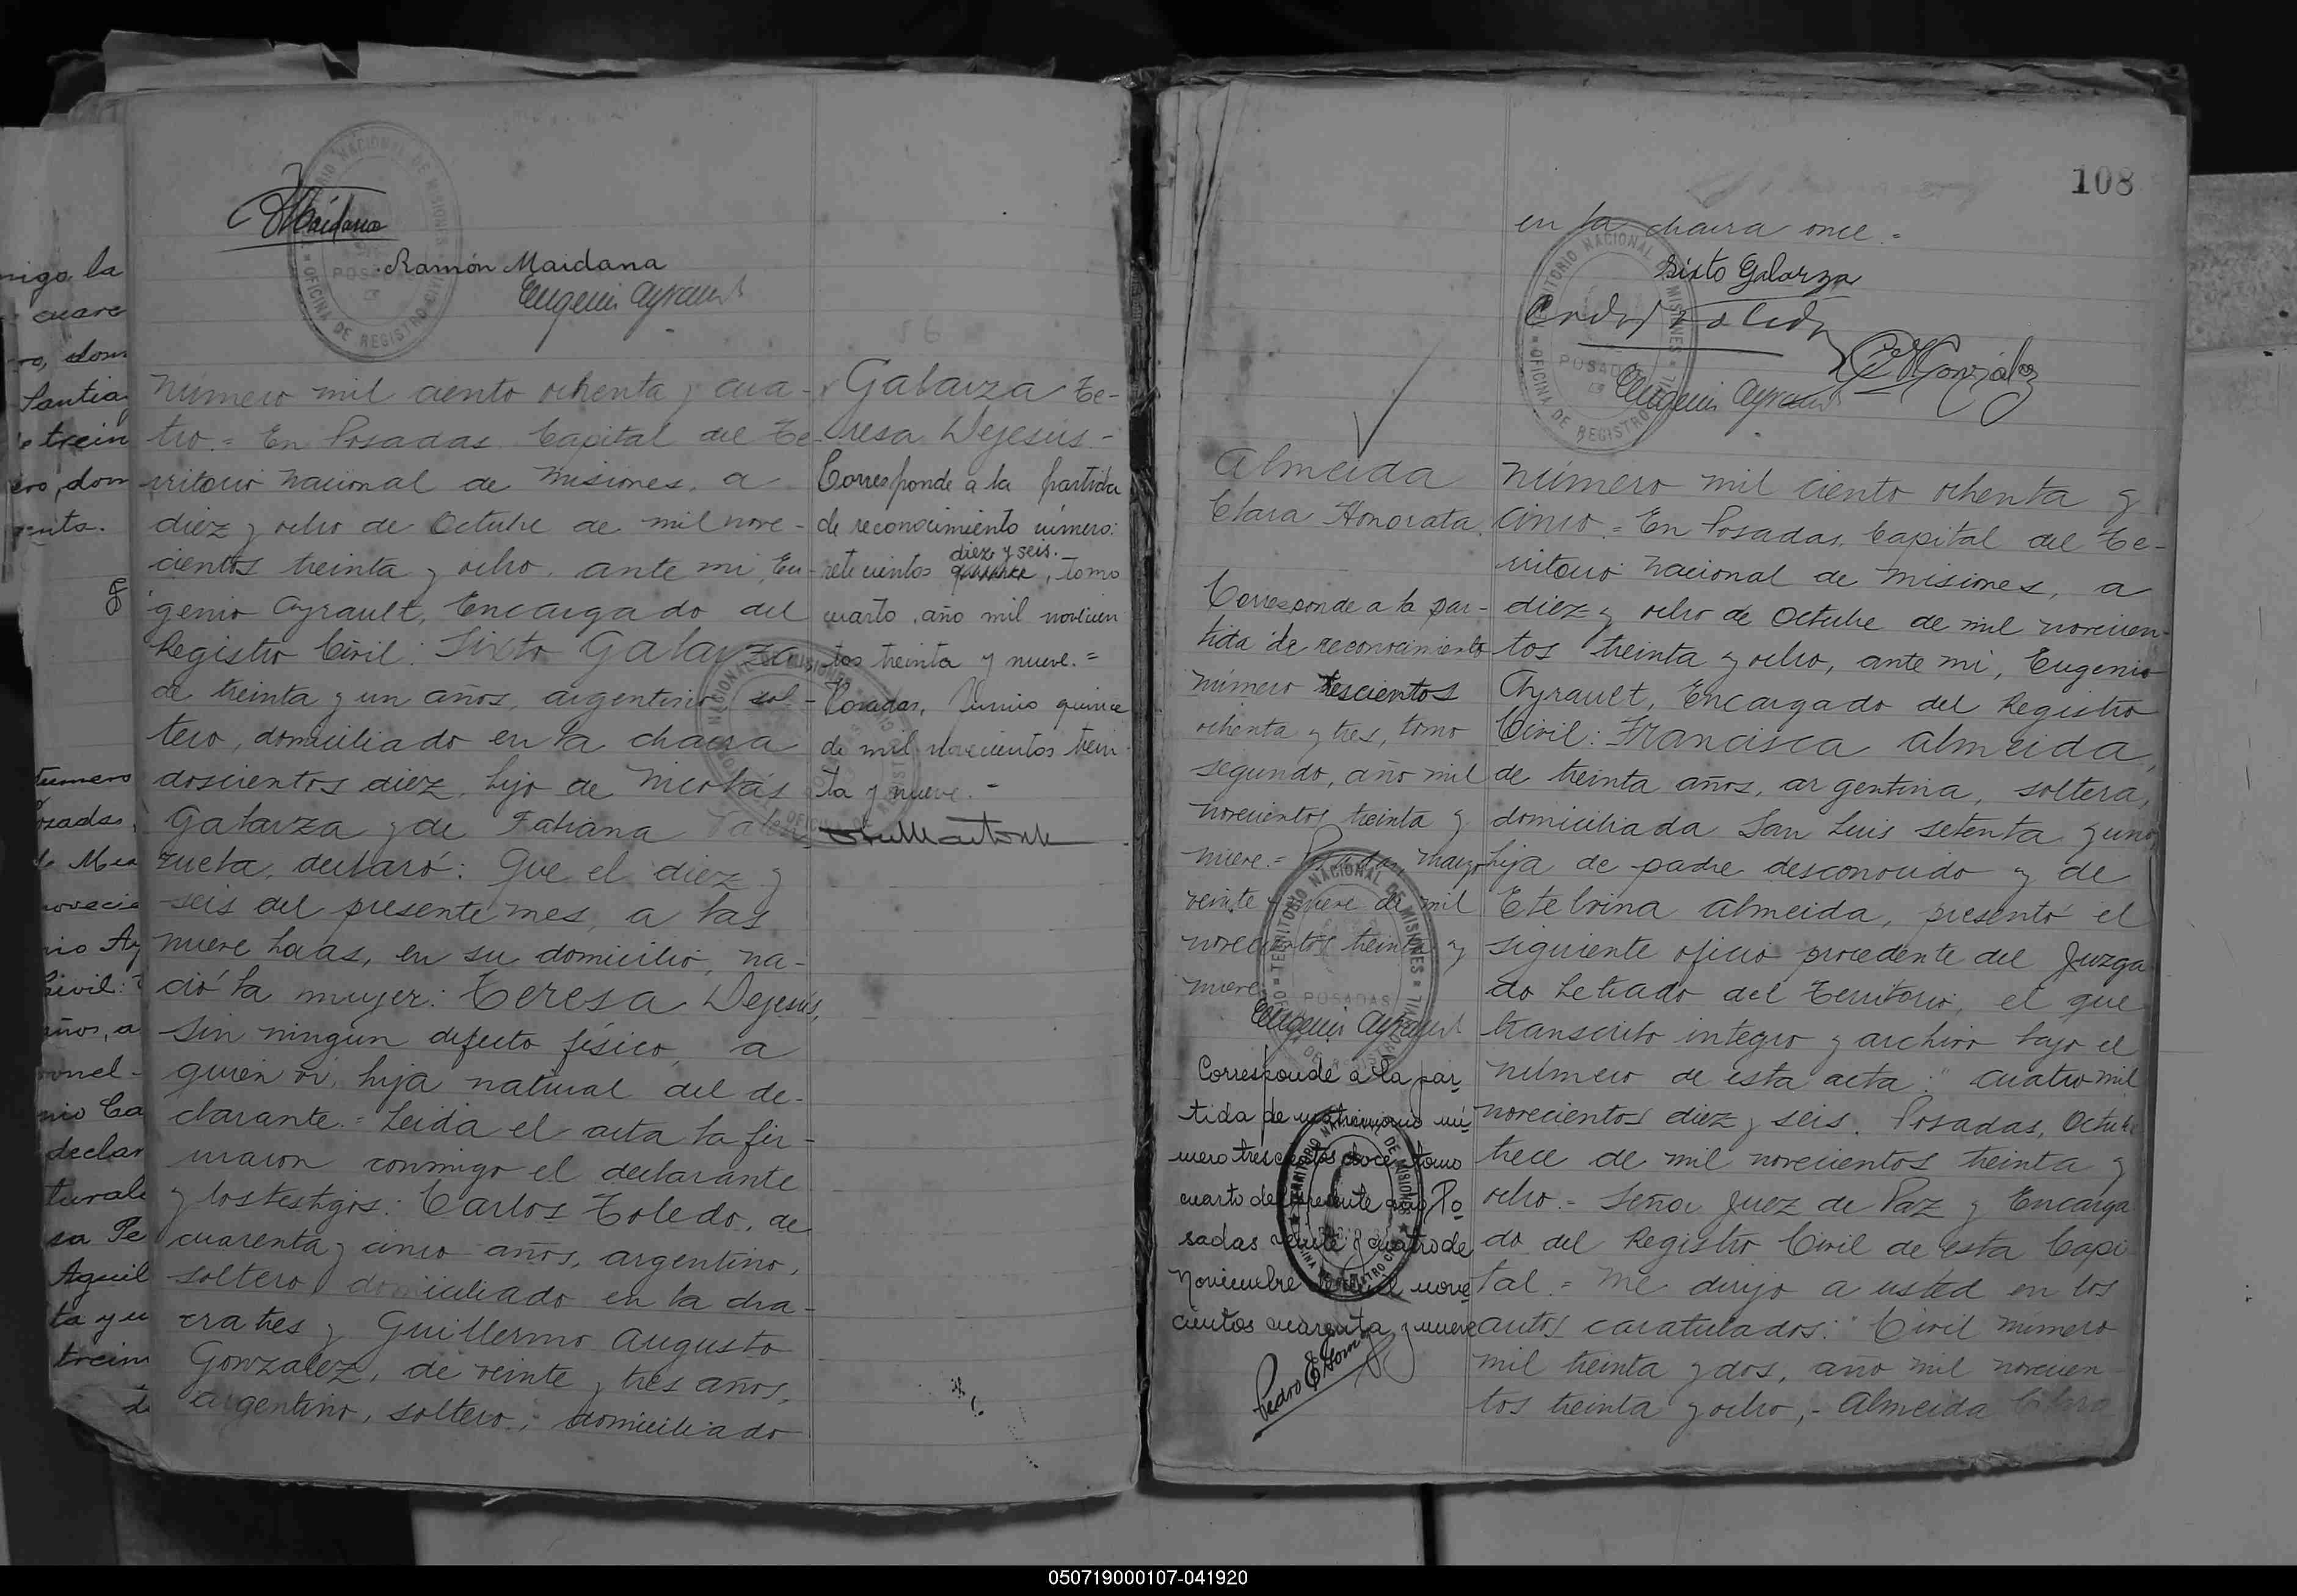 Maidana
Ramón Maidana
Eugenio Ayrault
Número mil ciento ochenta y cua-
tro.= En Posadas Capital del Te-
rritorio Nacional de Misiones, a
diez y ocho de Octubre de mil nove-
cientos treinta y ocho, ante mi, Eu-
genio Ayrault, Encargado del
Registro Civil: Sixto Galarza
de treinta y un años, argentino, sol-
tero, domiciliado en la chacra
doscientos diez, hijo de Nicolás
Galarza y de Fabiana Valen-
zuela, declaró: Que el diez y
seis del presente mes, a las
nueve horas, en su domicilio, na-
ció la mujer: Teresa Dejesús,
sin ningún defecto físico, a
quien vi, hija natural del de-
clarante.= Leida el acta la fir-
maron conmigo el declarante
y los testigos: Carlos Toledo, de
cuarenta y cinco años, argentino,
soltero, domiciliado en la cha-
cra tres y Guillermo Augusto
Gonzalez, de veinte y tres años,
argentino, soltero, domiciliado
Galarza Te-
resa Dejesús.-
Corresponde a la partida
de reconocimiento número:
diez y seis.-
setecientos, tomo
cuarto, año mil novecien
tos treinta y nueve.=
Posadas, Junio quince
de mil novecientos trein
ta y nueve.-
108
en la chacra once.=
Sixto Galarza
Carlos Toledo
G A González
Eugenio Ayrault
Almeida
Clara Honorata.
Corresponde a la par-
tida de reconocimiento
número trescientos
ochenta y tres, tomo
segundo, año mil
novecientos treinta y
nueve.= Posadas, marzo
veinte y nueve de mil
novecientos treinta y
nueve.
Eugenio Ayrault
Corresponde a la par
tida de matrimonio nú
mero trescientos doce tomo
cuarto del presente año Po
sadas veinte y cuatro de
Noviembre de mil nove
cientos cuarenta y nueve
Pedro E. Gom
Número mil ciento ochenta y
cinco.= En Posadas, Capital del Te-
rritorio Nacional de Misiones, a
diez y ocho de Octubre de mil novecien-
tos treinta y ocho, ante mi, Eugenio
Ayrault, Encargado del Registro
Civil: Francisca Almeida,
de treinta años, argentina, soltera,
domiciliada San Luis setenta y uno,
hija de padre desconocido y de
Etelvina Almeida, presentó el
siguiente oficio procedente del Juzga
do Letrado del Territorio, el que
transcribo integro y archivo bajo el
número de esta acta: "Cuatro mil
novecientos diez y seis. Posadas, Octubre
trece de mil novecientos treinta y
ocho.= Señor Juez de Paz y Encarga
do del Registro Civil de esta Capi
tal.= Me dirijo a usted en los
autos caratulados: "Civil número
mil treinta y dos, año mil novecien
tos treinta y ocho,- Almeida Clara
TERRITORIO NACIONAL DE MISIONES
POSADAS
OFICINA DE REGISTRO CIVIL
050719000107-041920